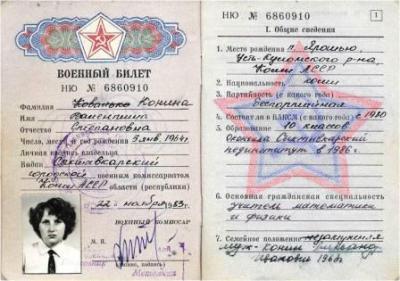 ВОЕННЫЙ БИЛЕТ
НЮ № 6860910
Фамилия Конина
Имя Валентина
Отчество Степановна
Число, месяц и год рождения 5 янв. 1964г.
Личная подпись владельца
Выдан Сыктывкарский
городской военным комиссариатом
Коми АССР области (республики)
22 ноября 1985 г.
ВОЕННЫЙ КОМИССАР
М. П.
НЮ № 6860910
1
I. Общие сведения
1. Место рождения п.
Усть-Куломского р-на
Коми АССР
2. Национальность коми
3. Партийность (с какого года)
беспартийная
4. Состоял в ВЛКСМ (с какого года) с 1980
5. Образование 10 классов
Окончила Сыктывкарский
пединститут в 1986г.
6. Основная гражданская специальность
учитель математики
и физики
7. Семейное положение
муж - Конин
Иванович 1960г.